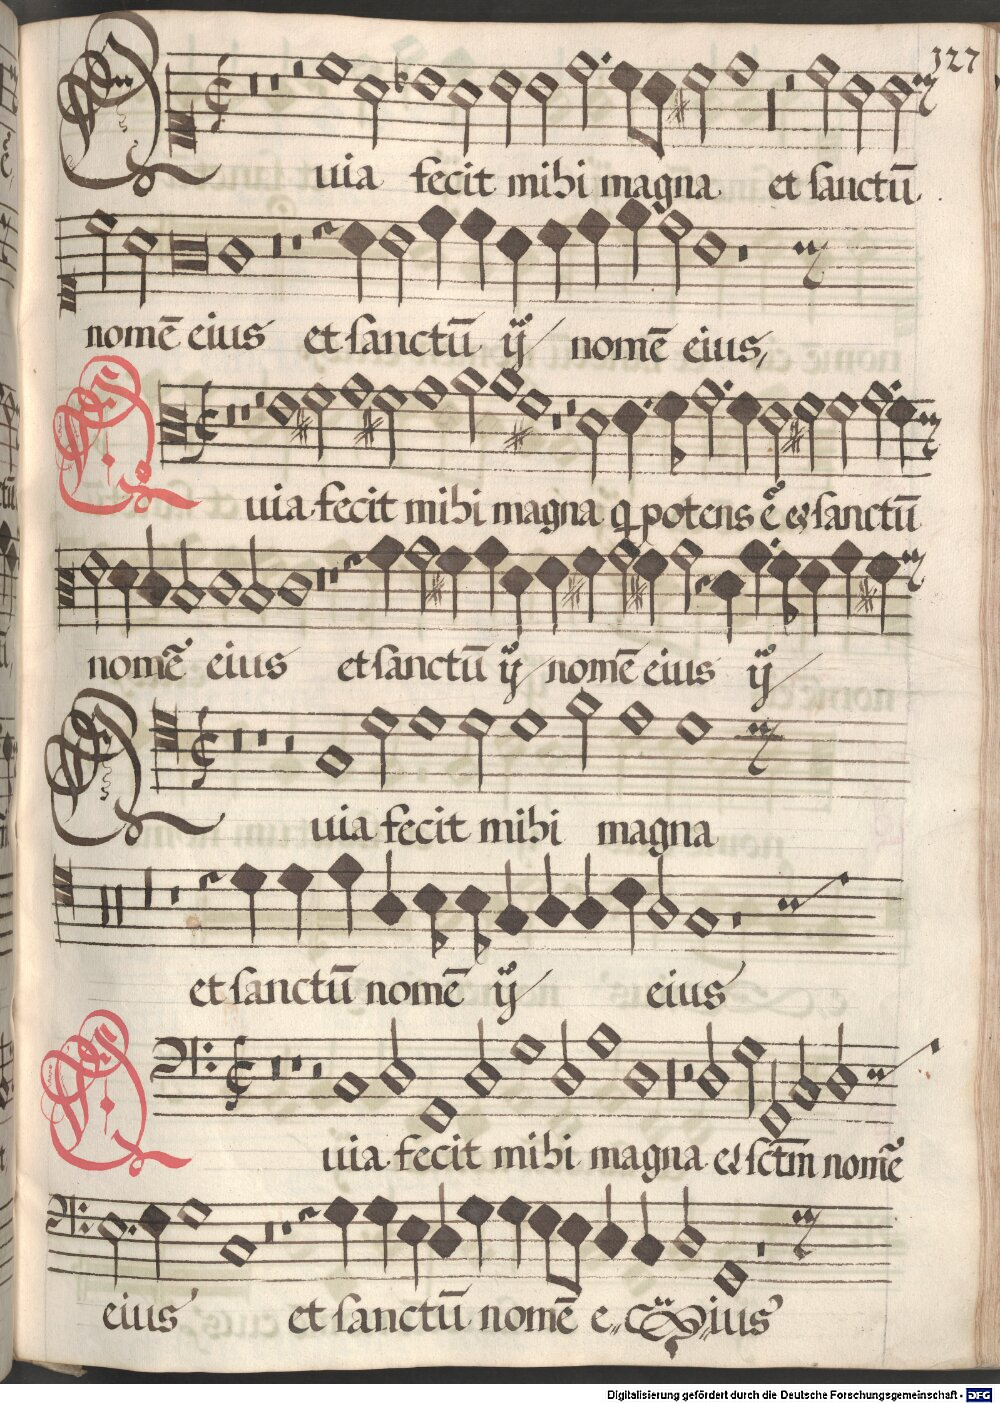 127
Quia fecit mihi magna et sanctū
nomē eius et sanctū ij nomē eius
Quia fecit mihi magna q potens ē et sanctū
nomē eius et sanctū ij nomē eius ij
Quia fecit mihi magna
et sanctū nomē ij eius
Quia fecit mihi magna et sctm nomē
eius et sanctū nomē eius
Digitalisierung gefördert durch die Deutsche Forschungsgemeinschaft - DFG